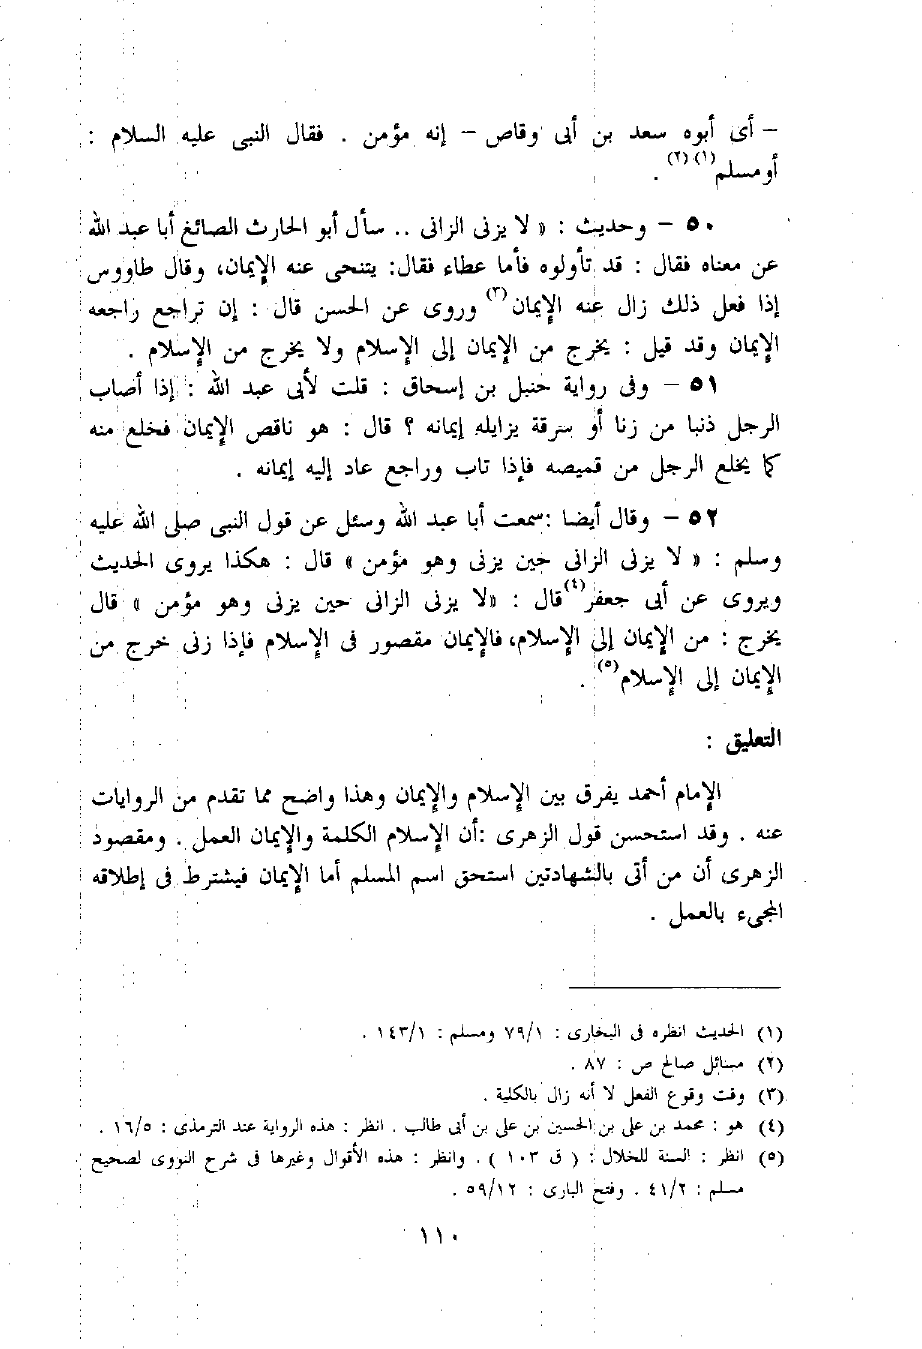 – أى أبوه سعد بن أبى وقاص – إنه مؤمن . فقال النبى عليه السلام :
أو مسلم(١)(٢) .
٥٠ – وحديث : « لا يزنى الزانى .. سأل أبو الحارث الصائغ أبا عبد الله
عن معناه فقال : قد تأولوه فأما عطاء فقال: يتنحى عنه الإيمان، وقال طاووس
إذا فعل ذلك زال عنه الإيمان(٣) وروى عن الحسن قال : إن تراجع راجعه
الإيمان وقد قيل : يخرج من الإيمان إلى الإسلام ولا يخرج من الإسلام .
٥١ – وفى رواية حنبل بن إسحاق : قلت لأبى عبد الله : إذا أصاب
الرجل ذنبا من زنا أو سرقة يزايله إيمانه ؟ قال : هو ناقص الإيمان فخلع منه
كما يخلع الرجل من قميصه فإذا تاب وراجع عاد إليه إيمانه .
٥٢ – وقال أيضا :سمعت أبا عبد الله وسئل عن قول النبى صلى الله عليه
وسلم : « لا يزنى الزانى حين يزنى وهو مؤمن » قال : هكذا يروى الحديث
ويروى عن أبى جعفر(٤) قال : «لا يزنى الزانى حين يزنى وهو مؤمن » قال
يخرج : من الإيمان إلى الإسلام، فالإيمان مقصور فى الإسلام فإذا زنى خرج من
الإيمان إلى الإسلام(٥) .
التعليق :
الإمام أحمد يفرق بين الإسلام والإيمان وهذا واضح مما تقدم من الروايات
عنه . وقد استحسن قول الزهرى :أن الإسلام الكلمة والإيمان العمل . ومقصود
الزهرى أن من أتى بالشهادتين استحق اسم المسلم أما الإيمان فيشترط فى إطلاقه
المجىء بالعمل .
(١) الحديث انظره فى البخارى : ٧٩/١ ومسلم : ١٤٣/١ .
(٢) مسائل صالح ص : ٨٧ .
(٣) وقت وقوع الفعل لا أنه زال بالكلية .
(٤) هو : محمد بن على بن الحسين بن على بن أبى طالب . انظر : هذه الرواية عند الترمذى : ١٦/٥ .
(٥) انظر : السنة للخلال : ( ق ١٠٣ ) . وانظر : هذه الأقوال وغيرها فى شرح النووى لصحيح
مسلم : ٤١/٢ . وفتح البارى : ٥٩/١٢ .
١١٠